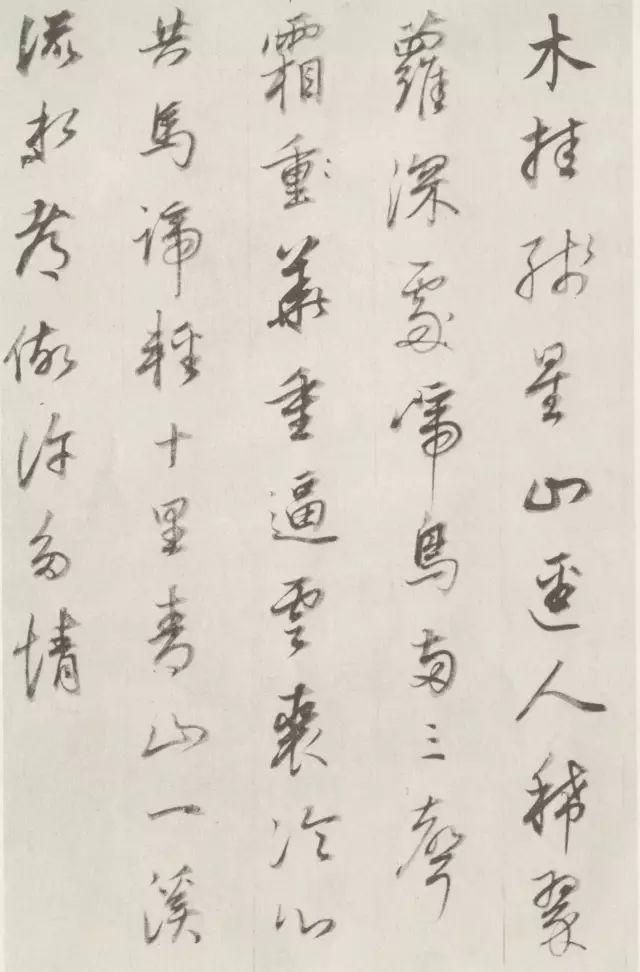 木挂殘星山逕人稀翠
蘿深處啼鳥兩三聲
霜重華重逼雲裘冷心
共馬蹄輕十里青山一溪
流水都做許多情